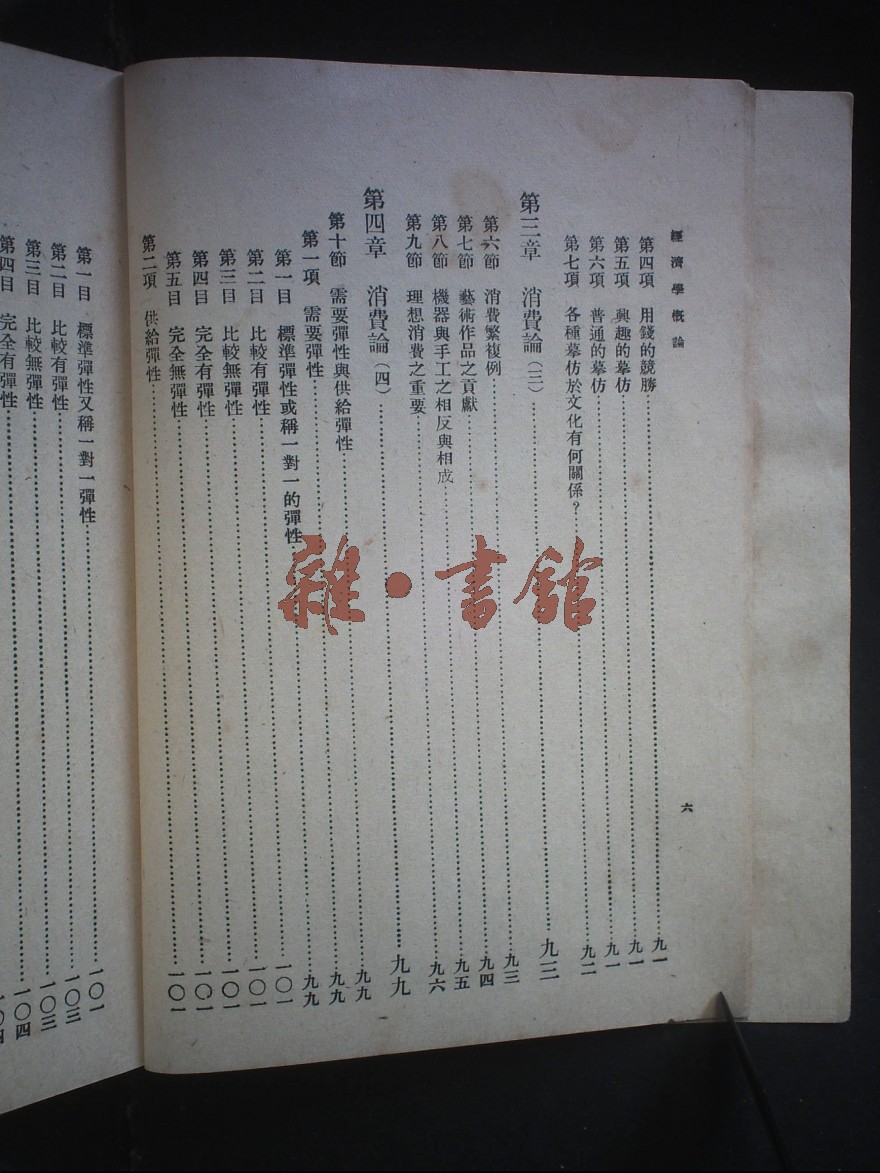 經濟學概論
六
第四項 用錢的競勝……九一
第五項 興趣的摹仿……九一
第六項 普通的摹仿……九一
第七項 各種摹仿於文化有何關係？……九二
第三章 消費論(三)……九三
第六節 消費繁複例……九三
第七節 藝術作品之貢獻……九四
第八節 機器與手工之相反與相成……九五
第九節 理想消費之重要……九六
第四章 消費論(四)……九九
第十節 需要彈性與供給彈性……九九
第一項 需要彈性……九九
第一目 標準彈性或稱一對一的彈性……九九
第二目 比較有彈性……一〇一
第三目 比較無彈性……一〇一
第四目 完全有彈性……一〇一
第五目 完全無彈性……一〇一
第二項 供給彈性……一〇一
第一目 標準彈性又稱一對一彈性……一〇一
第二目 比較有彈性……一〇三
第三目 比較無彈性……一〇三
第四目 完全有彈性……一〇四
雜·書館